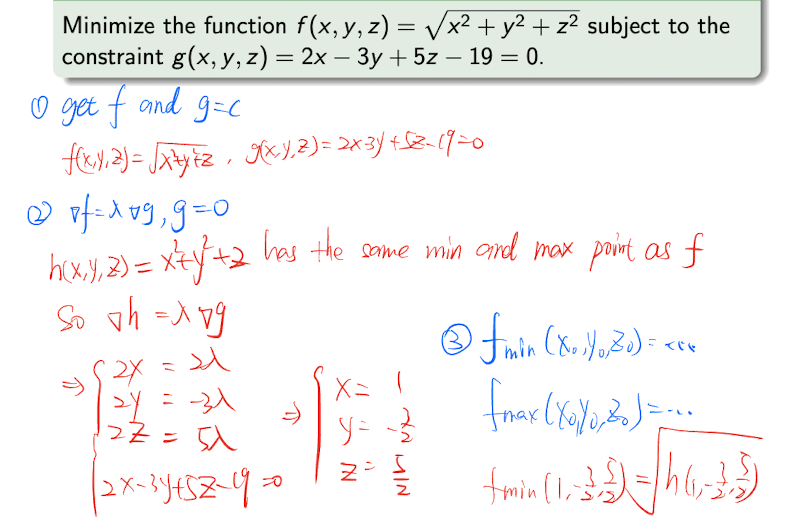 Minimize the function f(x, y, z) = √(x² + y² + z²) subject to the
constraint g(x, y, z) = 2x − 3y + 5z − 19 = 0.
① get f and g=c
f(x,y,z)=√(x²+y²+z), g(x,y,z)=2x-3y+5z-19=0
② ∇f=λ∇g, g=0
h(x,y,z)=x²+y²+z has the same min and max point as f
So ∇h=λ∇g
⇒ { 2x = 2λ
2y = -3λ
2z = 5λ
2x-3y+5z-19=0
⇒ { x= 1
y= -3/2
z= 5/2
③ fmin(x₀,y₀,z₀)=...
fmax(x₀,y₀,z₀)=...
fmin(1,-3/2,5/2)=√h(1,-3/2,5/2)